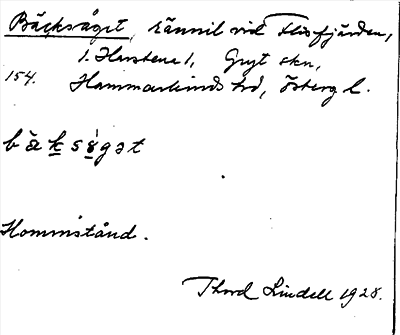 Bäcksöget, rännil vid Flisfjärden,
1. Harstena 1, Gryt skn,
154. Hammarkinds hd, Österg l.
bäksögət
Hommistånd.
Thord Lindell 1928.